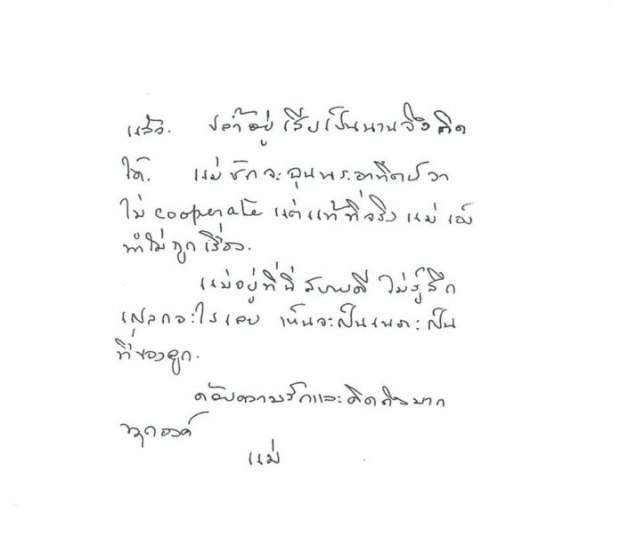 แล้ว. ปล้ำอยู่เสียเป็นนานจึงคิด
ได้. แม่ชักจะฉุนพระอาทิตย์ว่า
ไม่ cooperate แต่แท้ที่จริงแม่เฝ้
ทำไม่ถูกเรื่อง.
แม่อยู่ที่นี่สบายดี ไม่รู้สึก
แปลกอะไรเลย เห็นจะเป็นเพราะเป็น
ที่ของลูก.
ด้วยความรักและคิดถึงมาก
ทุกองค์
แม่